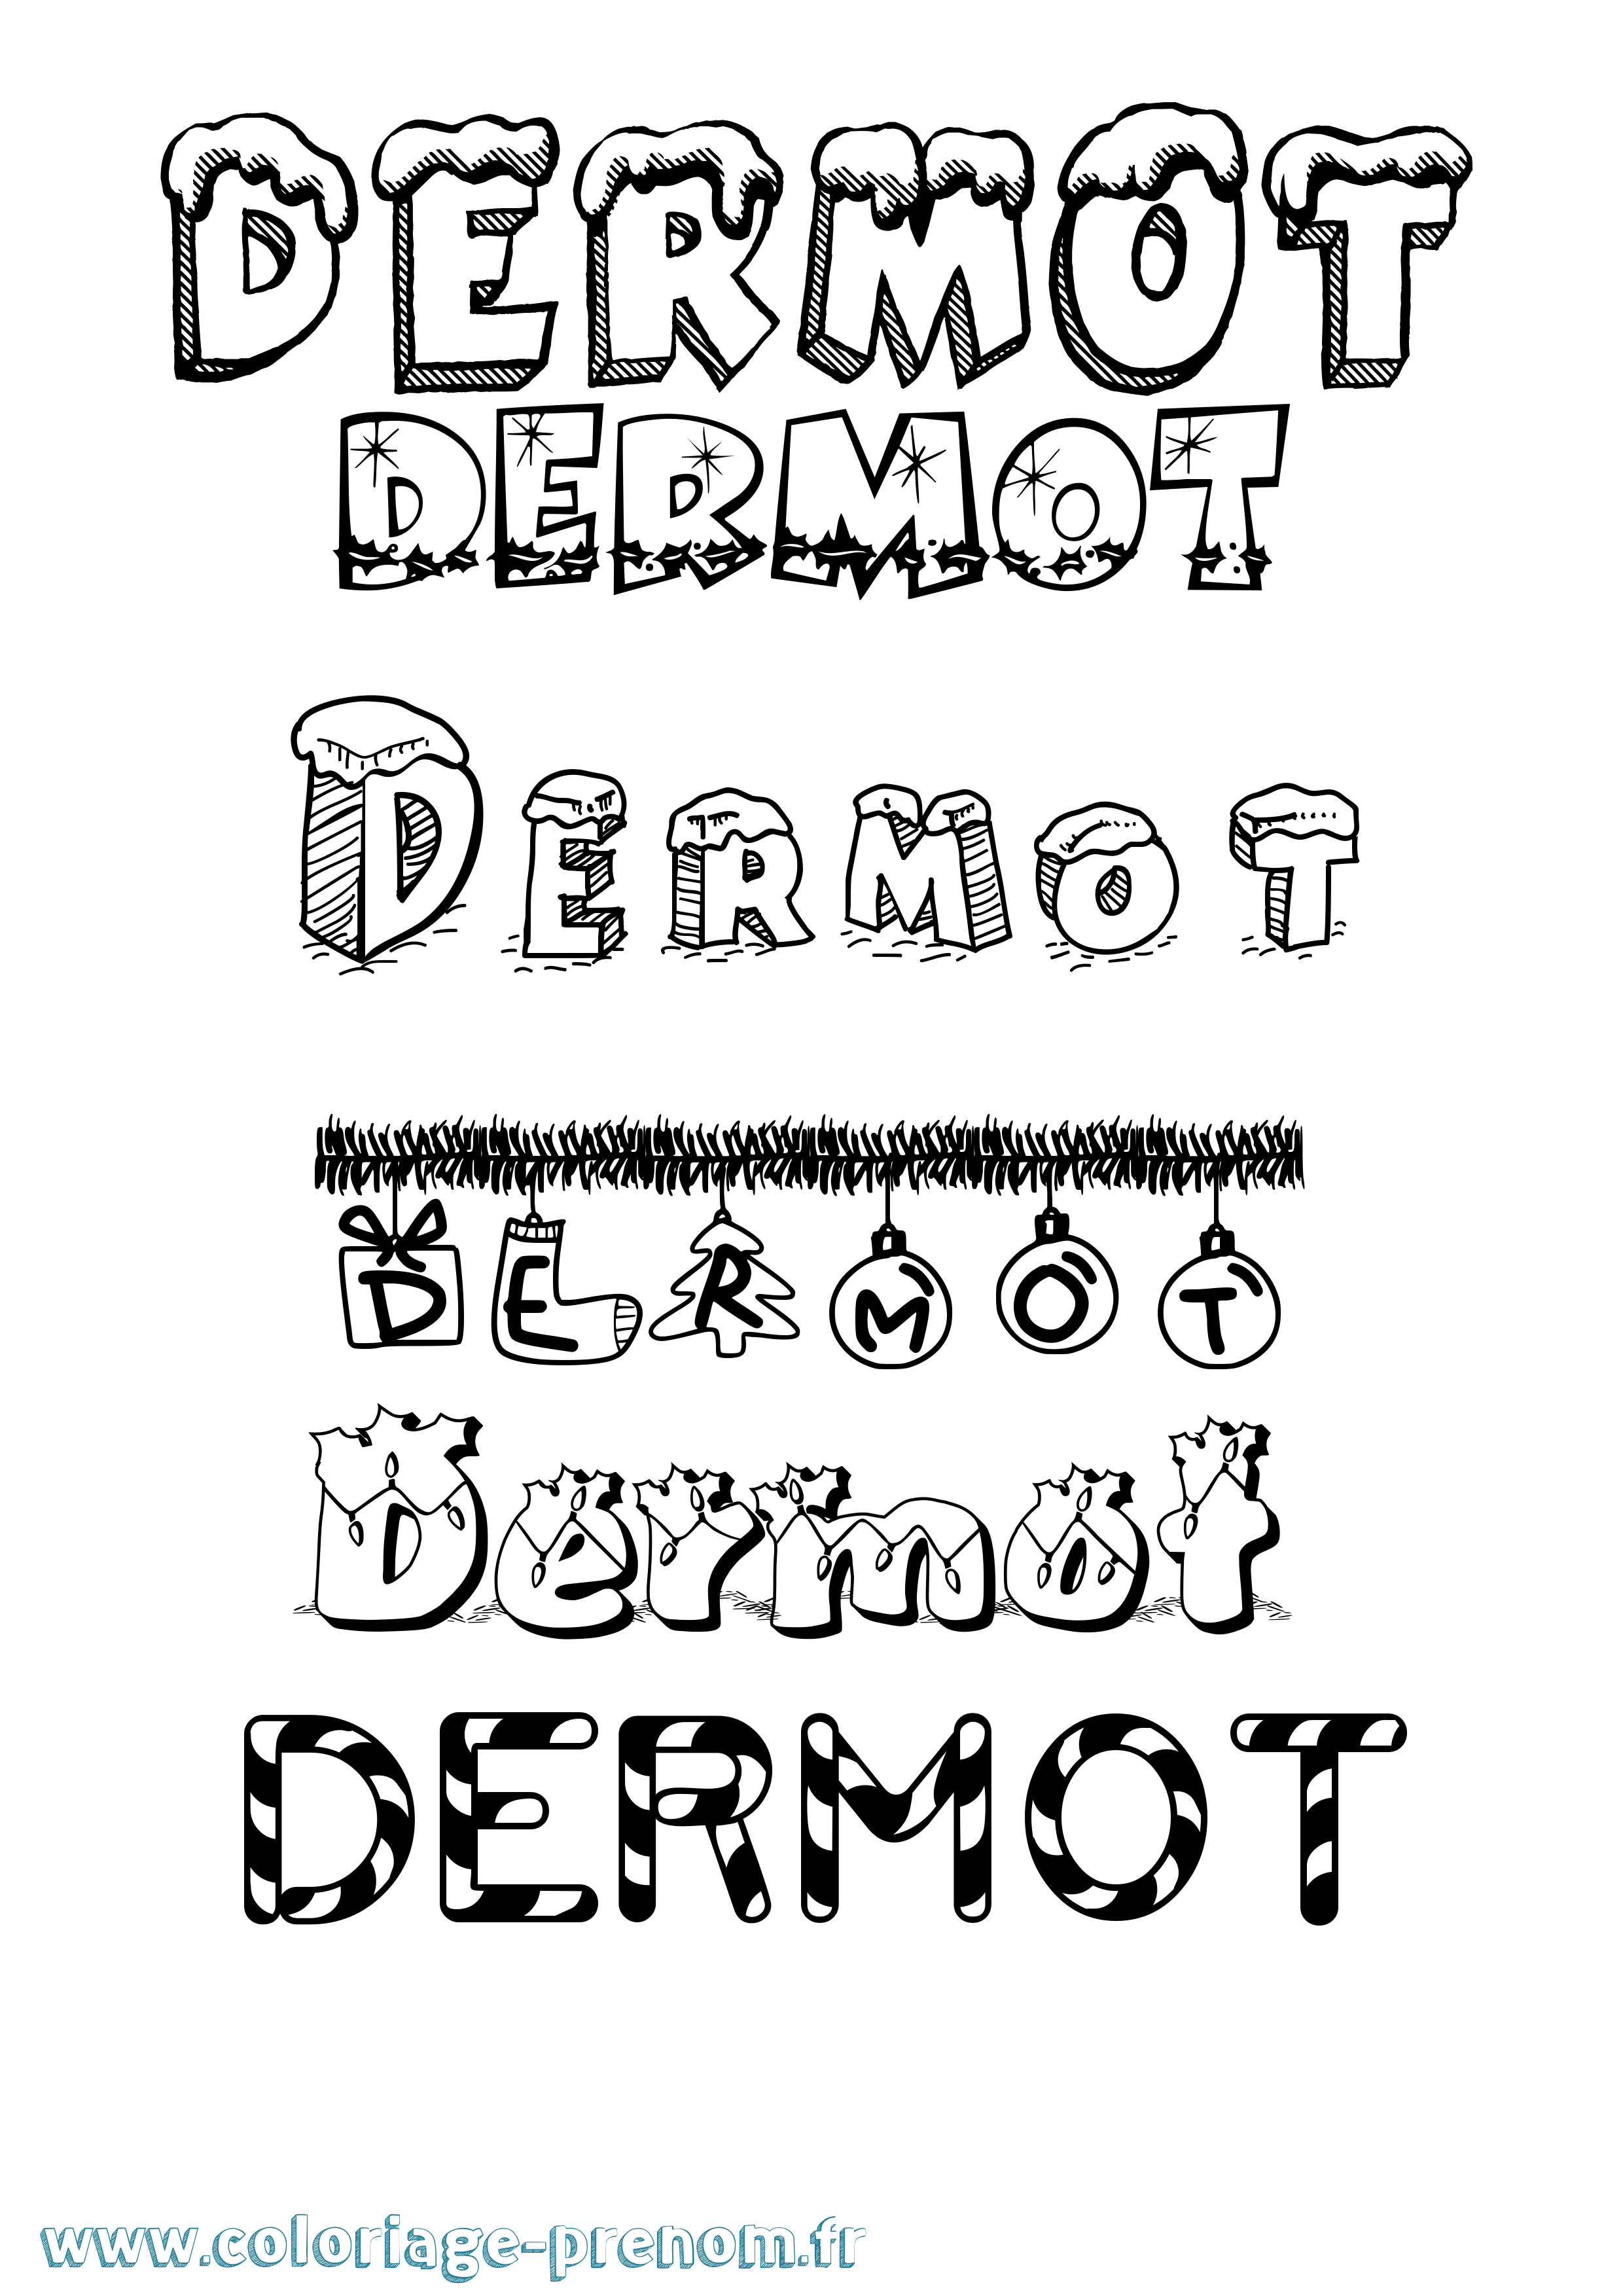 DERMOT
DERMOT
Dermot
DERMOT
Dermot
DERMOT
www.coloriage-prenom.fr